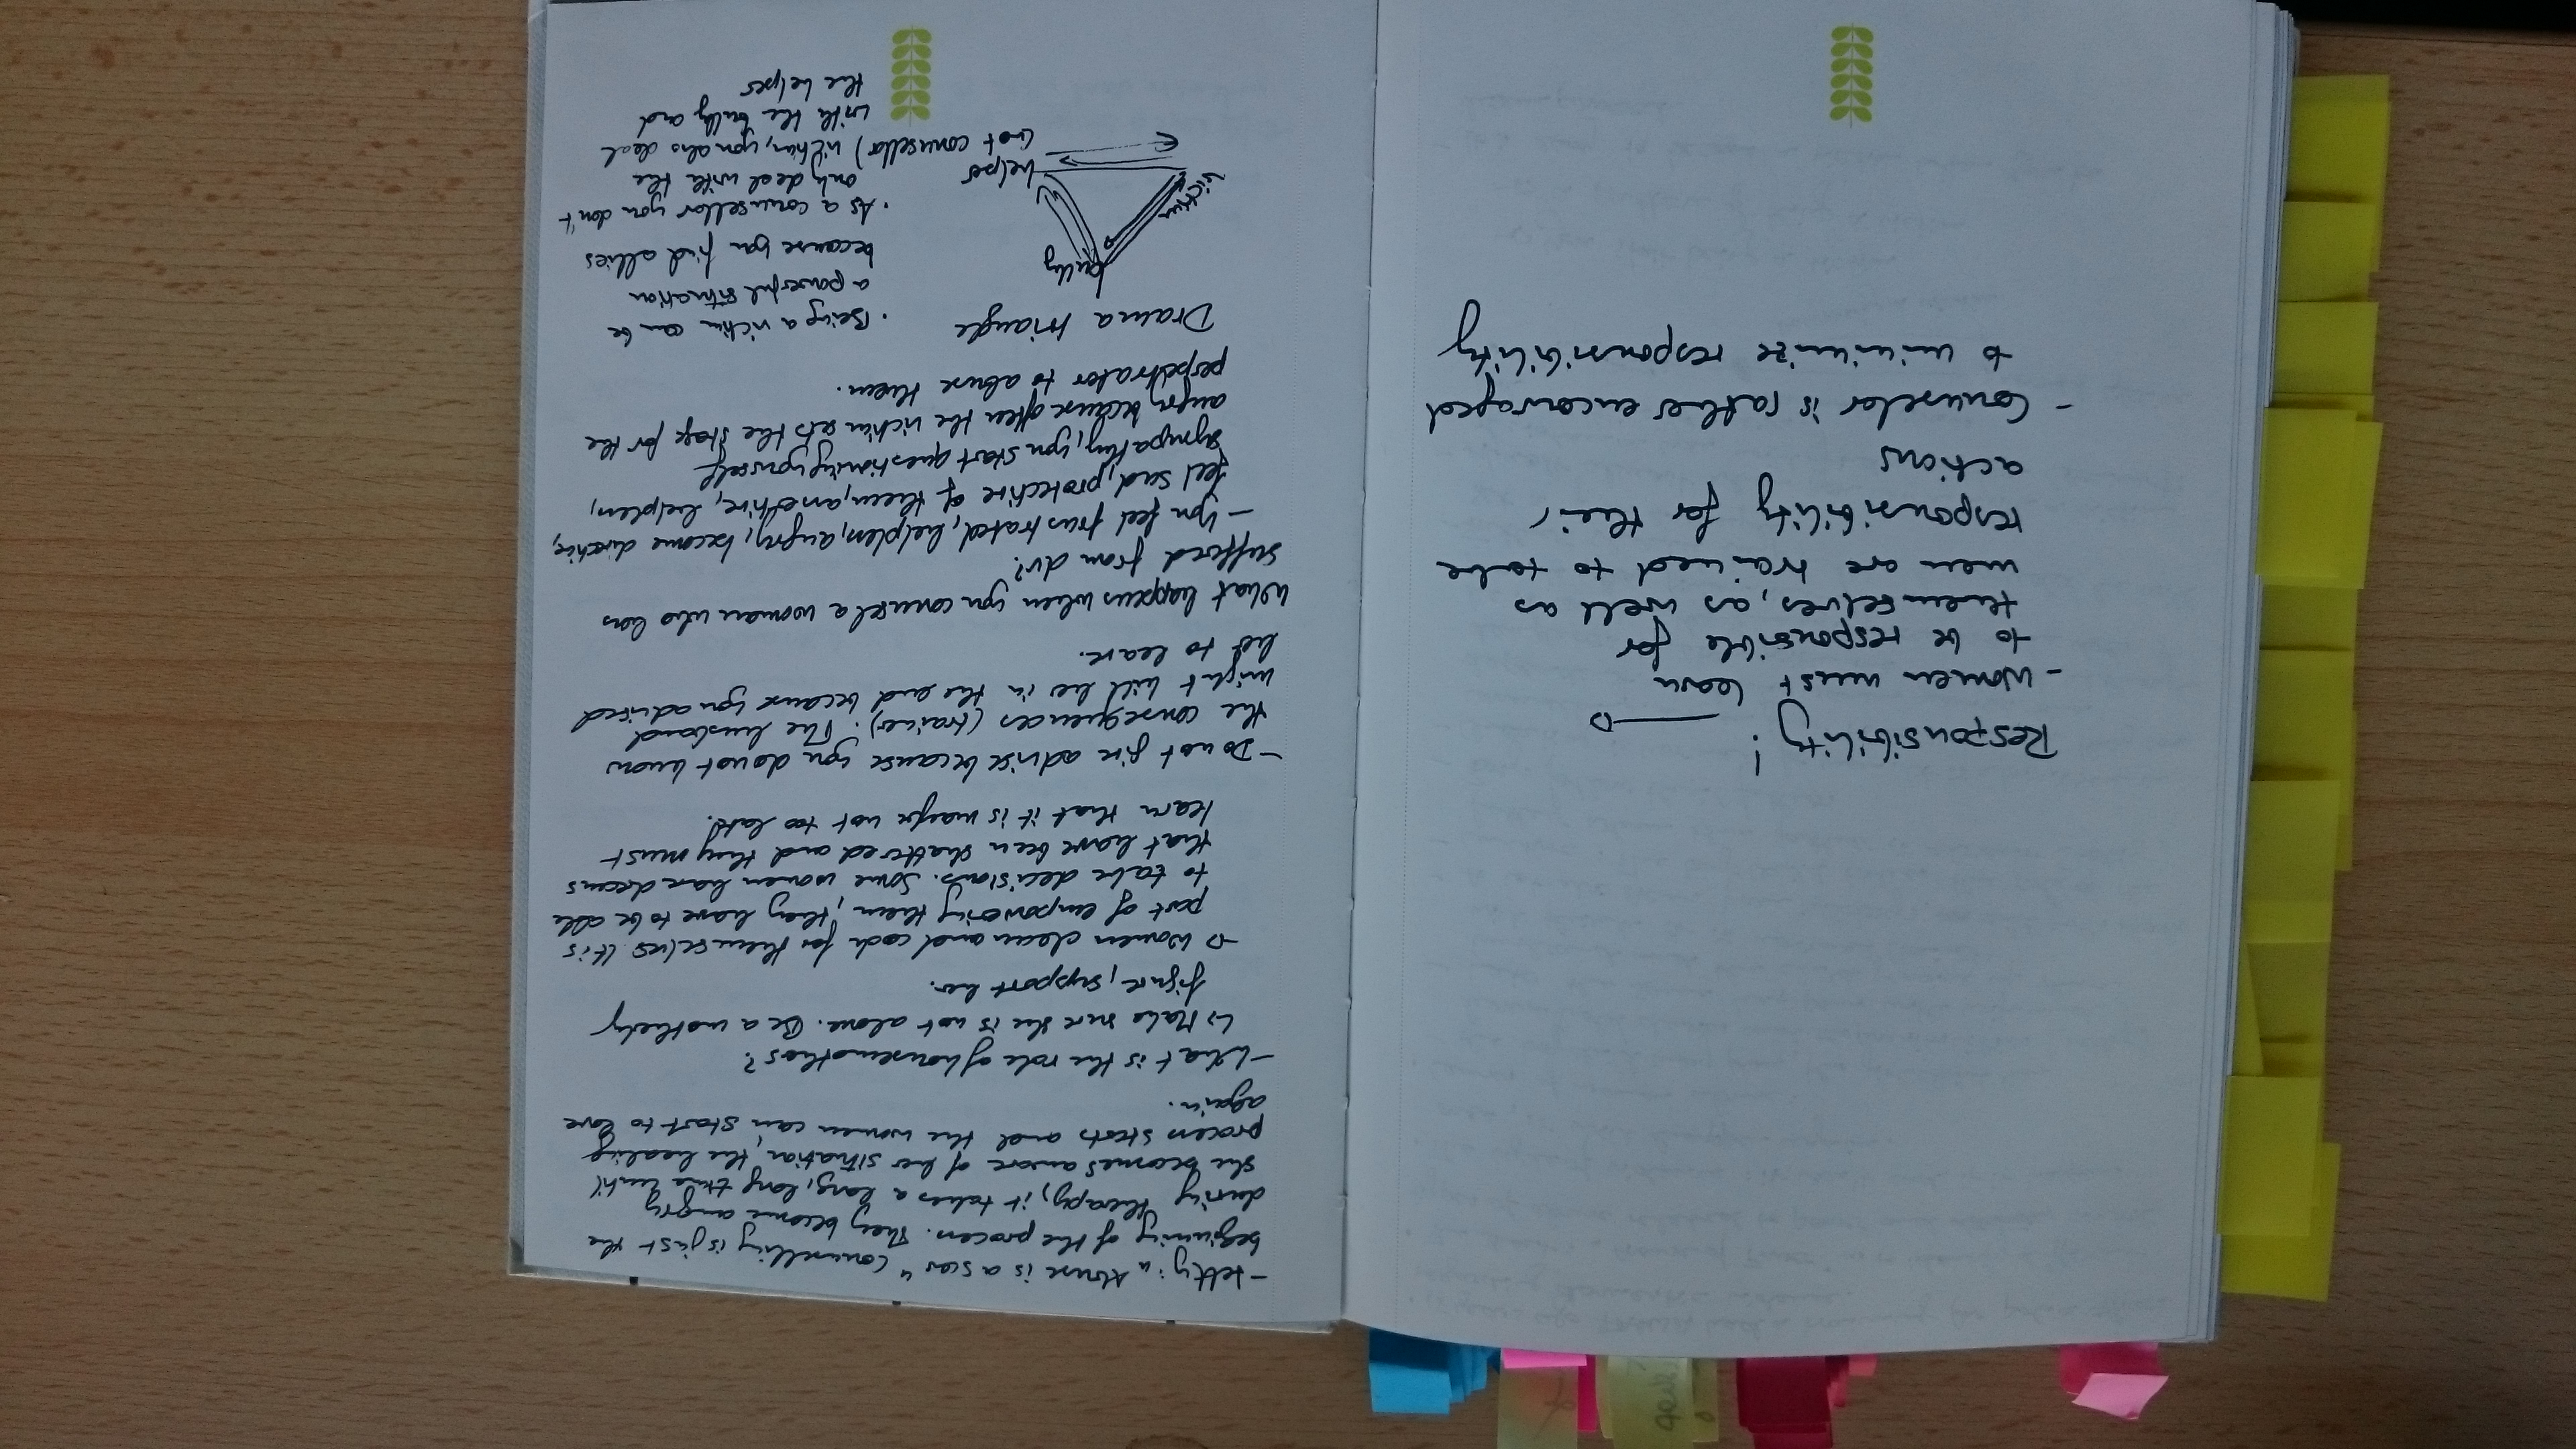 Responsibility!
- Women must learn
to be responsible for
themselves, as well as
men are trained to take
responsibility for their
actions
- Counselor is rather encouraged
to minimize responsibility
"Abuse is a scar" Counselling is just the
beginning of the process. They become angry
during therapy, it takes a long, long time until
she becomes aware of her situation, the healing
process starts and the women can start to love
again.
- What is the role of housemothers?
↳ Make sure she is not alone. Be a motherly
figure, support her.
→ Women clean and cook for themselves. It is
part of empowering them, they have to be able
to take decisions. Some women have dreams
that have been shattered and they must
learn that it is maybe not too late!
- Do not give advise because you do not know
the consequences (trainer). The husband
might kill her in the end because you adviced
her to leave.
What happens when you counsel a woman who has
suffered from dv?
- You feel frustrated, helpless, angry, become directive,
feel sad, protective of them, assertive, helpless,
sympathy, you start questioning yourself
angry because often the victim sets the stage for the
perpetrator to abuse them.
Drama triangle
bully
victim
helper
(not counsellor)
• Being a victim can be
a powerful situation
because you find allies
• As a counsellor you don't
only deal with the
victim, you also deal
with the bully and
the helper